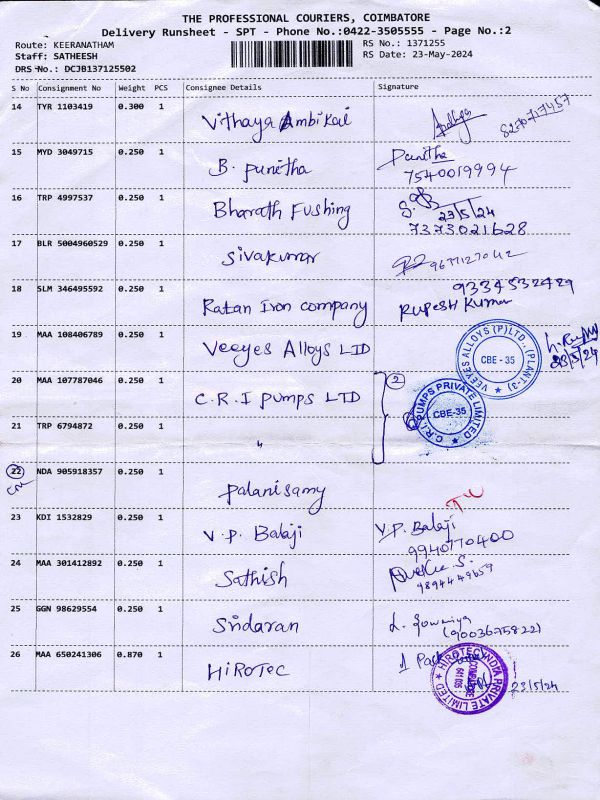 THE PROFESSIONAL COURIERS, COIMBATORE
Delivery Runsheet - SPT - Phone No.:0422-3505555 - Page No.:2
Route: KEERANATHAM
RS No.: 1371255
Staff: SATHEESH
RS Date: 23-May-2024
DRS No.: DCJB137125502
S No Consignment No Weight PCS Consignee Details Signature
14 TYR 1103419 0.300 1 Vithaya Ambikai 8270717457
15 MYD 3049715 0.250 1 B. Punitha Punitha
7540019994
16 TRP 4997537 0.250 1 Bharath Fushing
23/5/24
7373021628
17 BLR 5004960529 0.250 1 Sivakumar 9677127042
18 SLM 346495592 0.250 1 Ratan Iron company 9334532429
Rupesh Kumar
19 MAA 108406789 0.250 1 Veeyes Alloys LTD
VEEYES ALLOYS (P) LTD., (PLANT-3)
CBE - 35
23/5/24
20 MAA 107787046 0.250 1 C.R.I PUMPS LTD 2
C.R.I. PUMPS PRIVATE LIMITED
CBE-35
21 TRP 6794872 0.250 1 "
22 NDA 905918357 0.250 1 Palanisamy
23 KDI 1532829 0.250 1 V.P. Balaji V.P. Balaji
9940770400
24 MAA 301412892 0.250 1 Sathish
9894449659
25 GGN 98629554 0.250 1 Sridaran L. Sowmiya
(9003675822)
26 MAA 650241306 0.870 1 HiROTEC 1 Pack
HIROTEC INDIA PRIVATE LIMITED
COIMBATORE
641 105
23/5/24